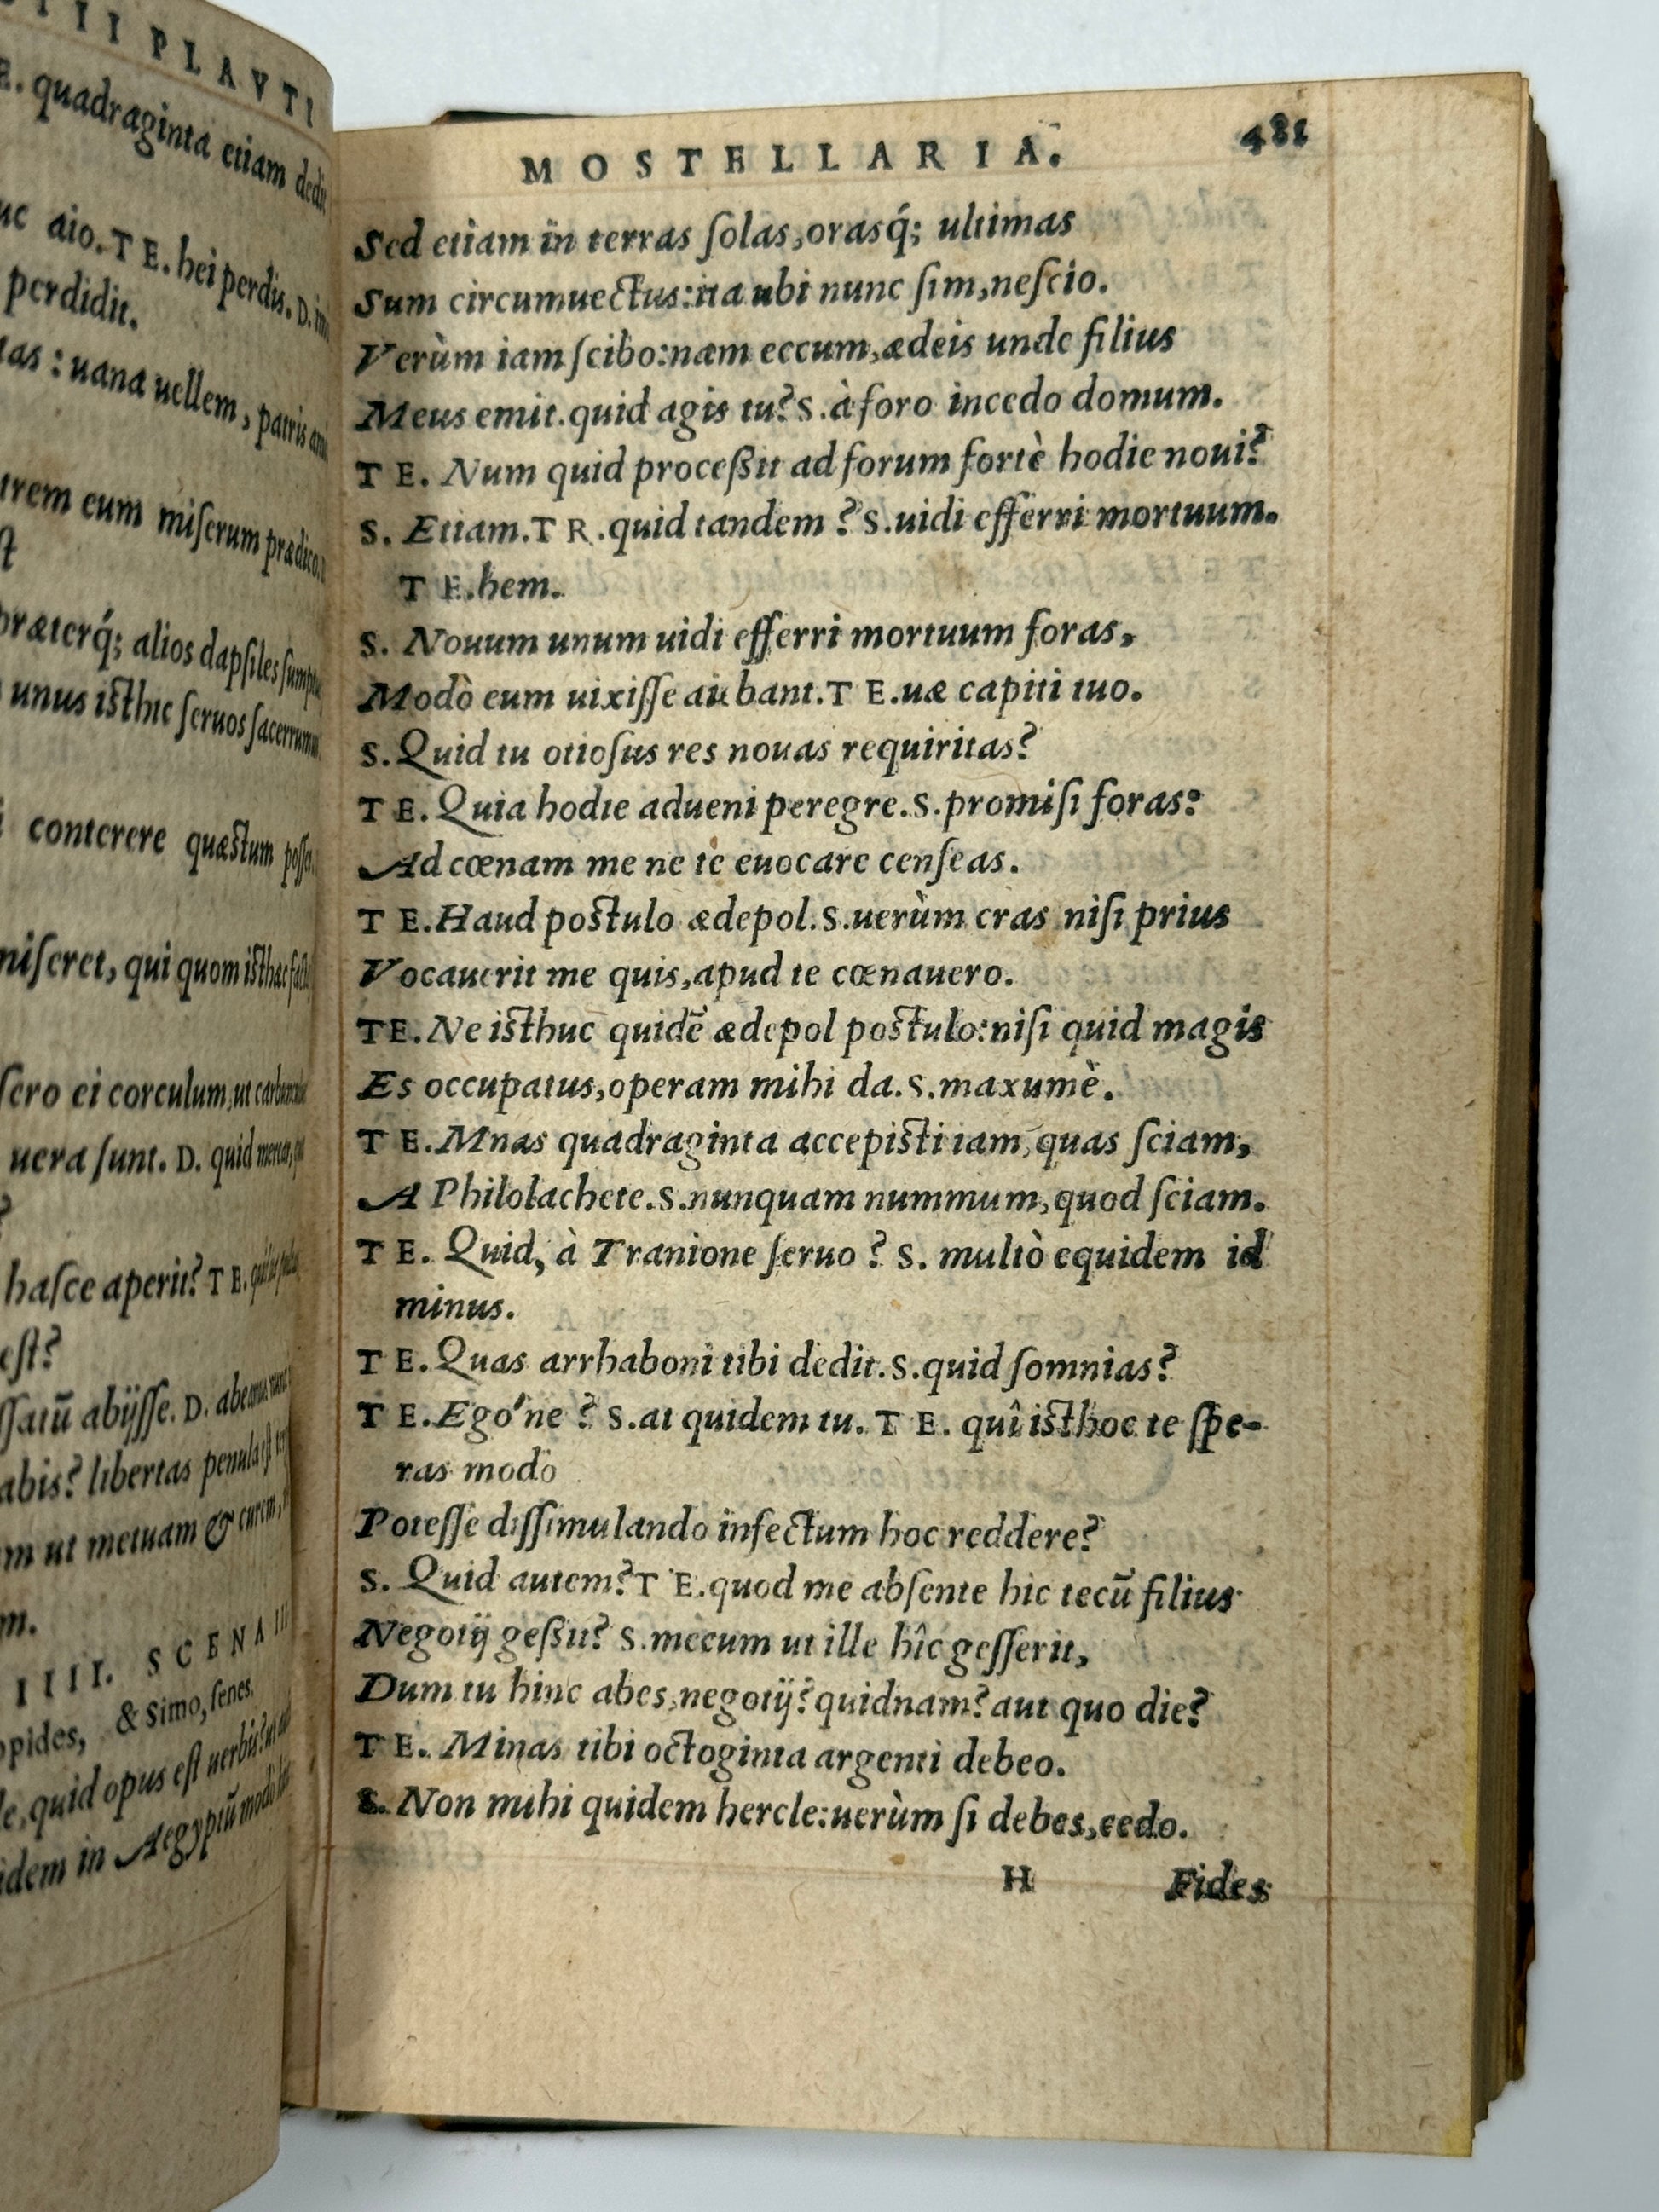 TII PLAVTI
E. quadraginta etiam dedit
uc aio. T E. hei perdis. D.
perdidit.
tas : uana uellem, patris
trem eum miſerum prædico.
ſt
præterq́; alios dapſiles
unus iſthic ſeruos ſacerrumus
conterere quæſtum
miſeret, qui quom iſthæc
ſero ei corculum, ut
uera ſunt. D. quid
haſce aperit? T E.
eſt?
ſſatū abijſſe. D.
abis? libertas penula
m ut metuam & curem,
m.
IIII. SCENA III
opides, & Simo, ſenes.
le, quid opus eſt uerbis?
idem in Aegyptū modò
MOSTELLARIA. 481
Sed etiam in terras ſolas, orasq́; ultimas
Sum circumuectus: ita ubi nunc ſim, neſcio.
Verùm iam ſcibo: nam eccum, ædeis unde filius
Meus emit. quid agis tu? S. à foro incedo domum.
T E. Num quid proceßit ad forum fortè hodie noui?
S. Etiam. T R. quid tandem ? S. uidi efferri mortuum.
T E. hem.
S. Nouum unum uidi efferri mortuum foras,
Modò eum uixiſſe aiebant. T E. uæ capiti tuo.
S. Quid tu otioſus res nouas requiritas?
T E. Quia hodie adueni peregre. S. promiſi foras:
Ad cœnam me ne te euocare cenſeas.
T E. Haud poſtulo ædepol. S. uerùm cras niſi prius
Vocauerit me quis, apud te cœnauero.
TE. Ne iſthuc quidē ædepol poſtulo: niſi quid magis
Es occupatus, operam mihi da. S. maxumè.
T E. Mnas quadraginta accepiſti iam, quas ſciam,
A Philolachete. S. nunquam nummum, quod ſciam.
T E. Quid, à Tranione ſeruo ? S. multò equidem id
minus.
T E. Quas arrhaboni tibi dedit. S. quid ſomnias?
T E. Ego'ne ? S. at quidem tu. T E. quî iſthoc te ſpe-
ras modò
Poteſſe diſſimulando infectum hoc reddere?
S. Quid autem? T E. quod me abſente hic tecū filius
Negotij geßit? S. mecum ut ille hîc geſſerit,
Dum tu hinc abes, negotij? quidnam? aut quo die?
T E. Minas tibi octoginta argenti debeo.
S. Non mihi quidem hercle: uerùm ſi debes, cedo.
H Fides